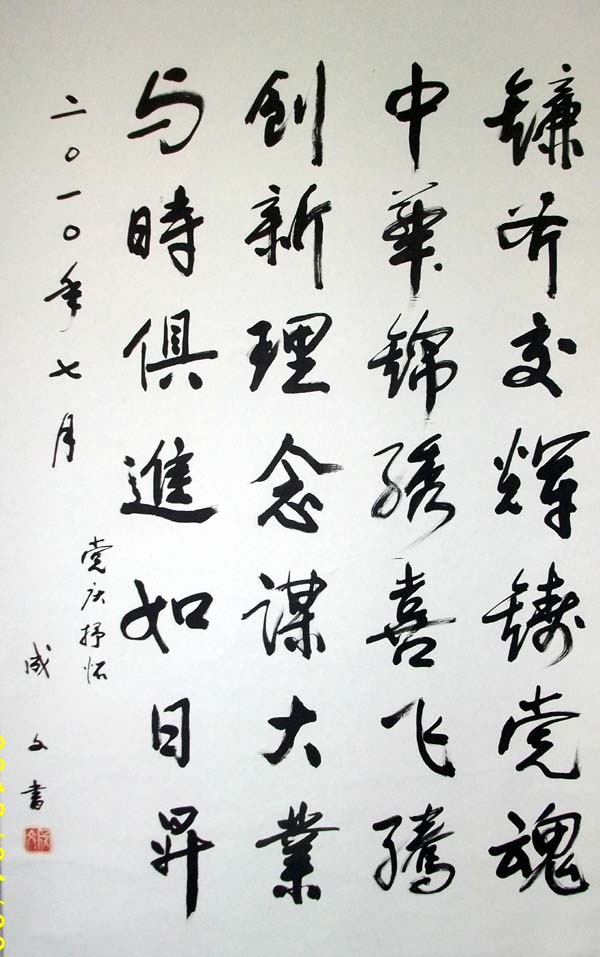 镰斧交辉铸党魂
中華锦绣喜飞腾
创新理念谋大業
与時俱進如日昇
党庆抒怀
二〇一〇年七月
成文書